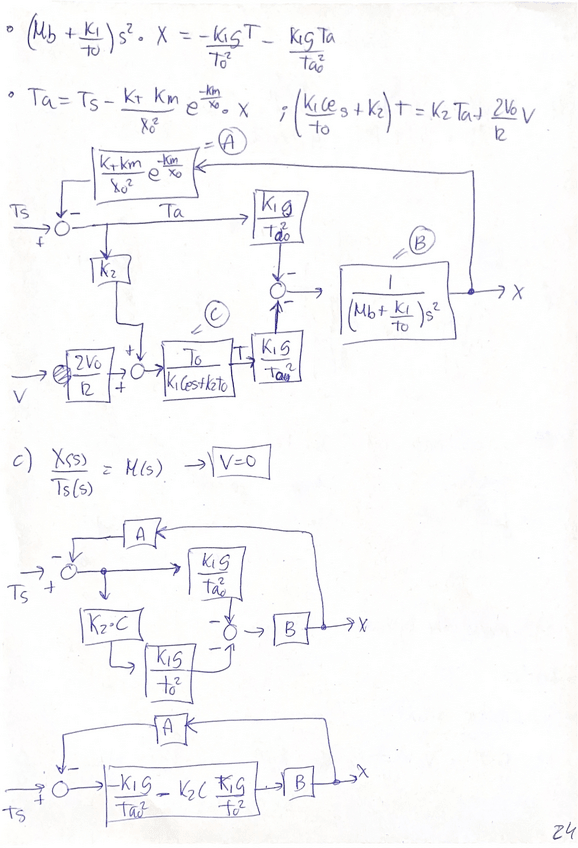 • (Mb + K1/to) s² · X = -K1gT/To² - K1gTa/Tao²
• Ta = Ts - KT Km/X0² e^(-Km/X0) · X ; (K1Ce/to s + K2) T = K2 Ta + 2V0/R V
KT Km/X0² e^(-Km/X0) = A
Ts + - Ta K1g/Tao²
K2 - - 1/((Mb + K1/to)s²) B X
V 2V0/R + + To/(K1Ces+K2to) C T K1g/Tao²
c) X(s)/Ts(s) = M(s) → V=0
A
Ts + - K1g/Tao²
K2·C - - B X
K1g/to²
A
Ts + - -K1g/Tao² - K2C K1g/to² B X
24